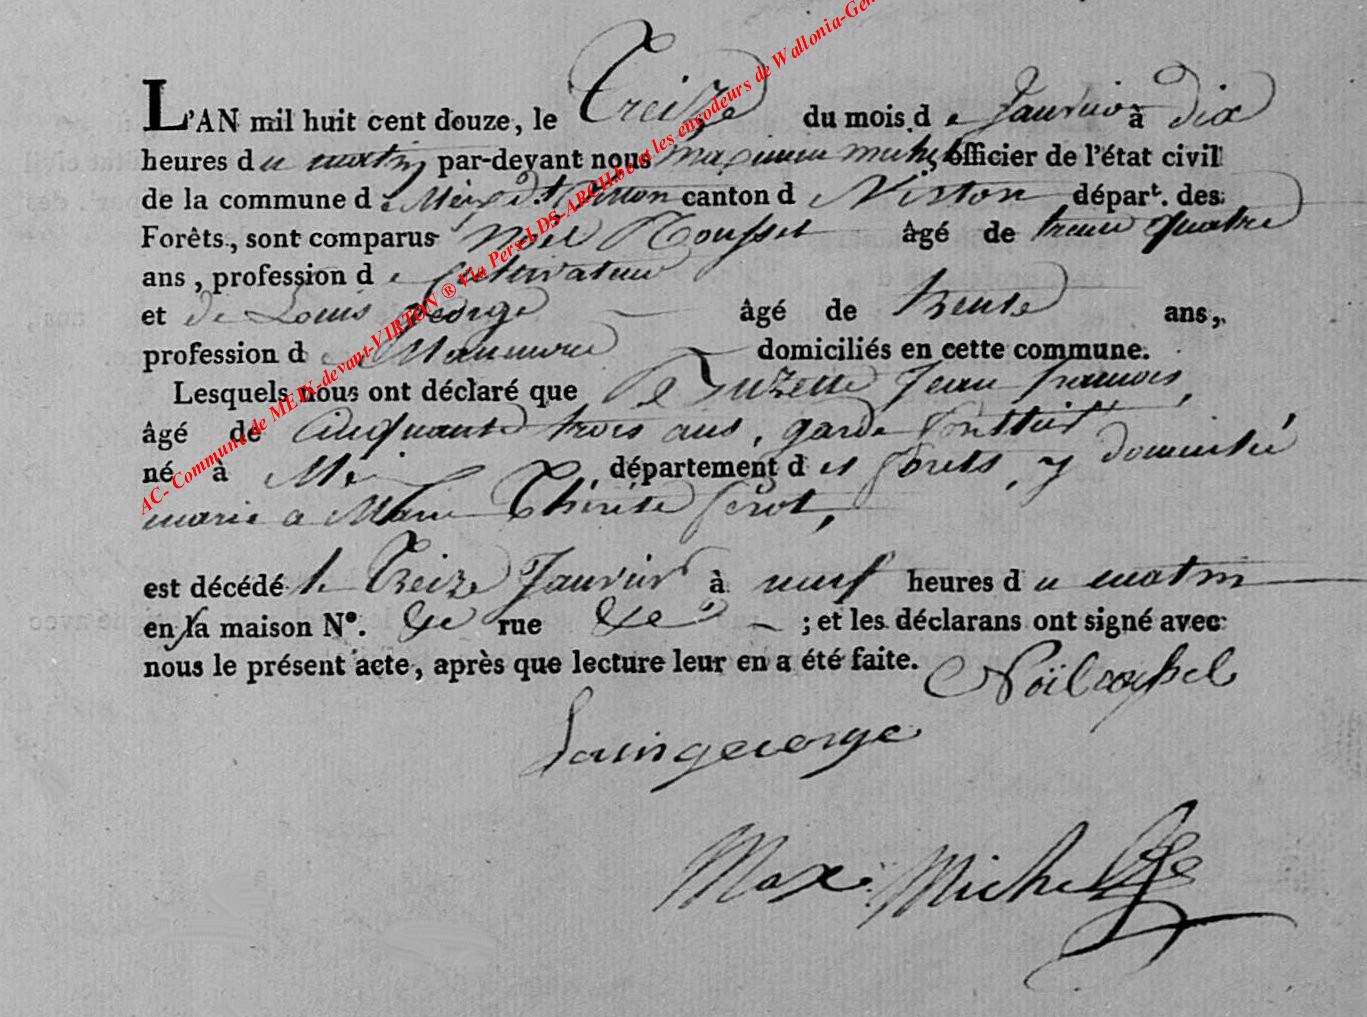 AC- Commune de MEIX-devant-VIRTON ® Via Pers-LDS-ARCH.be et les encodeurs de Wallonia-Gen
L'AN mil huit cent douze, le Treize du mois de Janvier à dix
heures du matin par-devant nous Maximin Michel officier de l'état civil
de la commune de Meix dt Virton canton de Virton départ. des
Forêts, sont comparus Noël Roussel âgé de trente quatre
ans, profession de Cultivateur
et de Louis George âgé de trente ans,
profession de Manuvre domiciliés en cette commune.
Lesquels nous ont déclaré que le Suzette Jean francois,
âgé de Cinquante trois ans, garde
né à Meix, département des forets, y domicilié
marie a Marie Thérése
est décédé le Treize Janvier à neuf heures du matin
en la maison N°. rue ; et les déclarans ont signé avec
nous le présent acte, après que lecture leur en a été faite.
Noïl
Louis george
Max: Michel